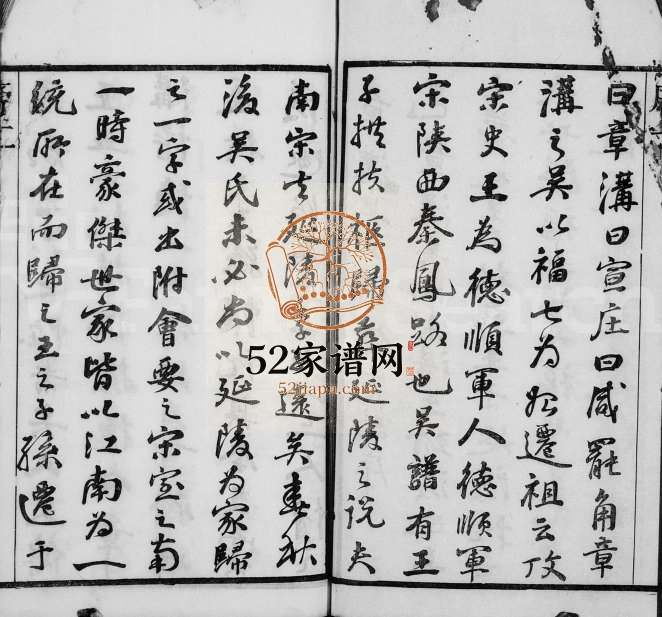 曰章溝曰宣庄曰咸罷角章
溝之吳以福七为始遷祖云攷
宋史王為德順軍人德順軍
宋陝西秦鳳路也吳譜有王
子扶歸延陵之説夫
南宋去延陵遠矣春秋
後吳氏未必尚以延陵為家歸
之一字或出附會要之宋室之南
一時豪傑世家皆以江南为一
統所在而歸之王之子孫遷于
52家谱网
52jiapu.com